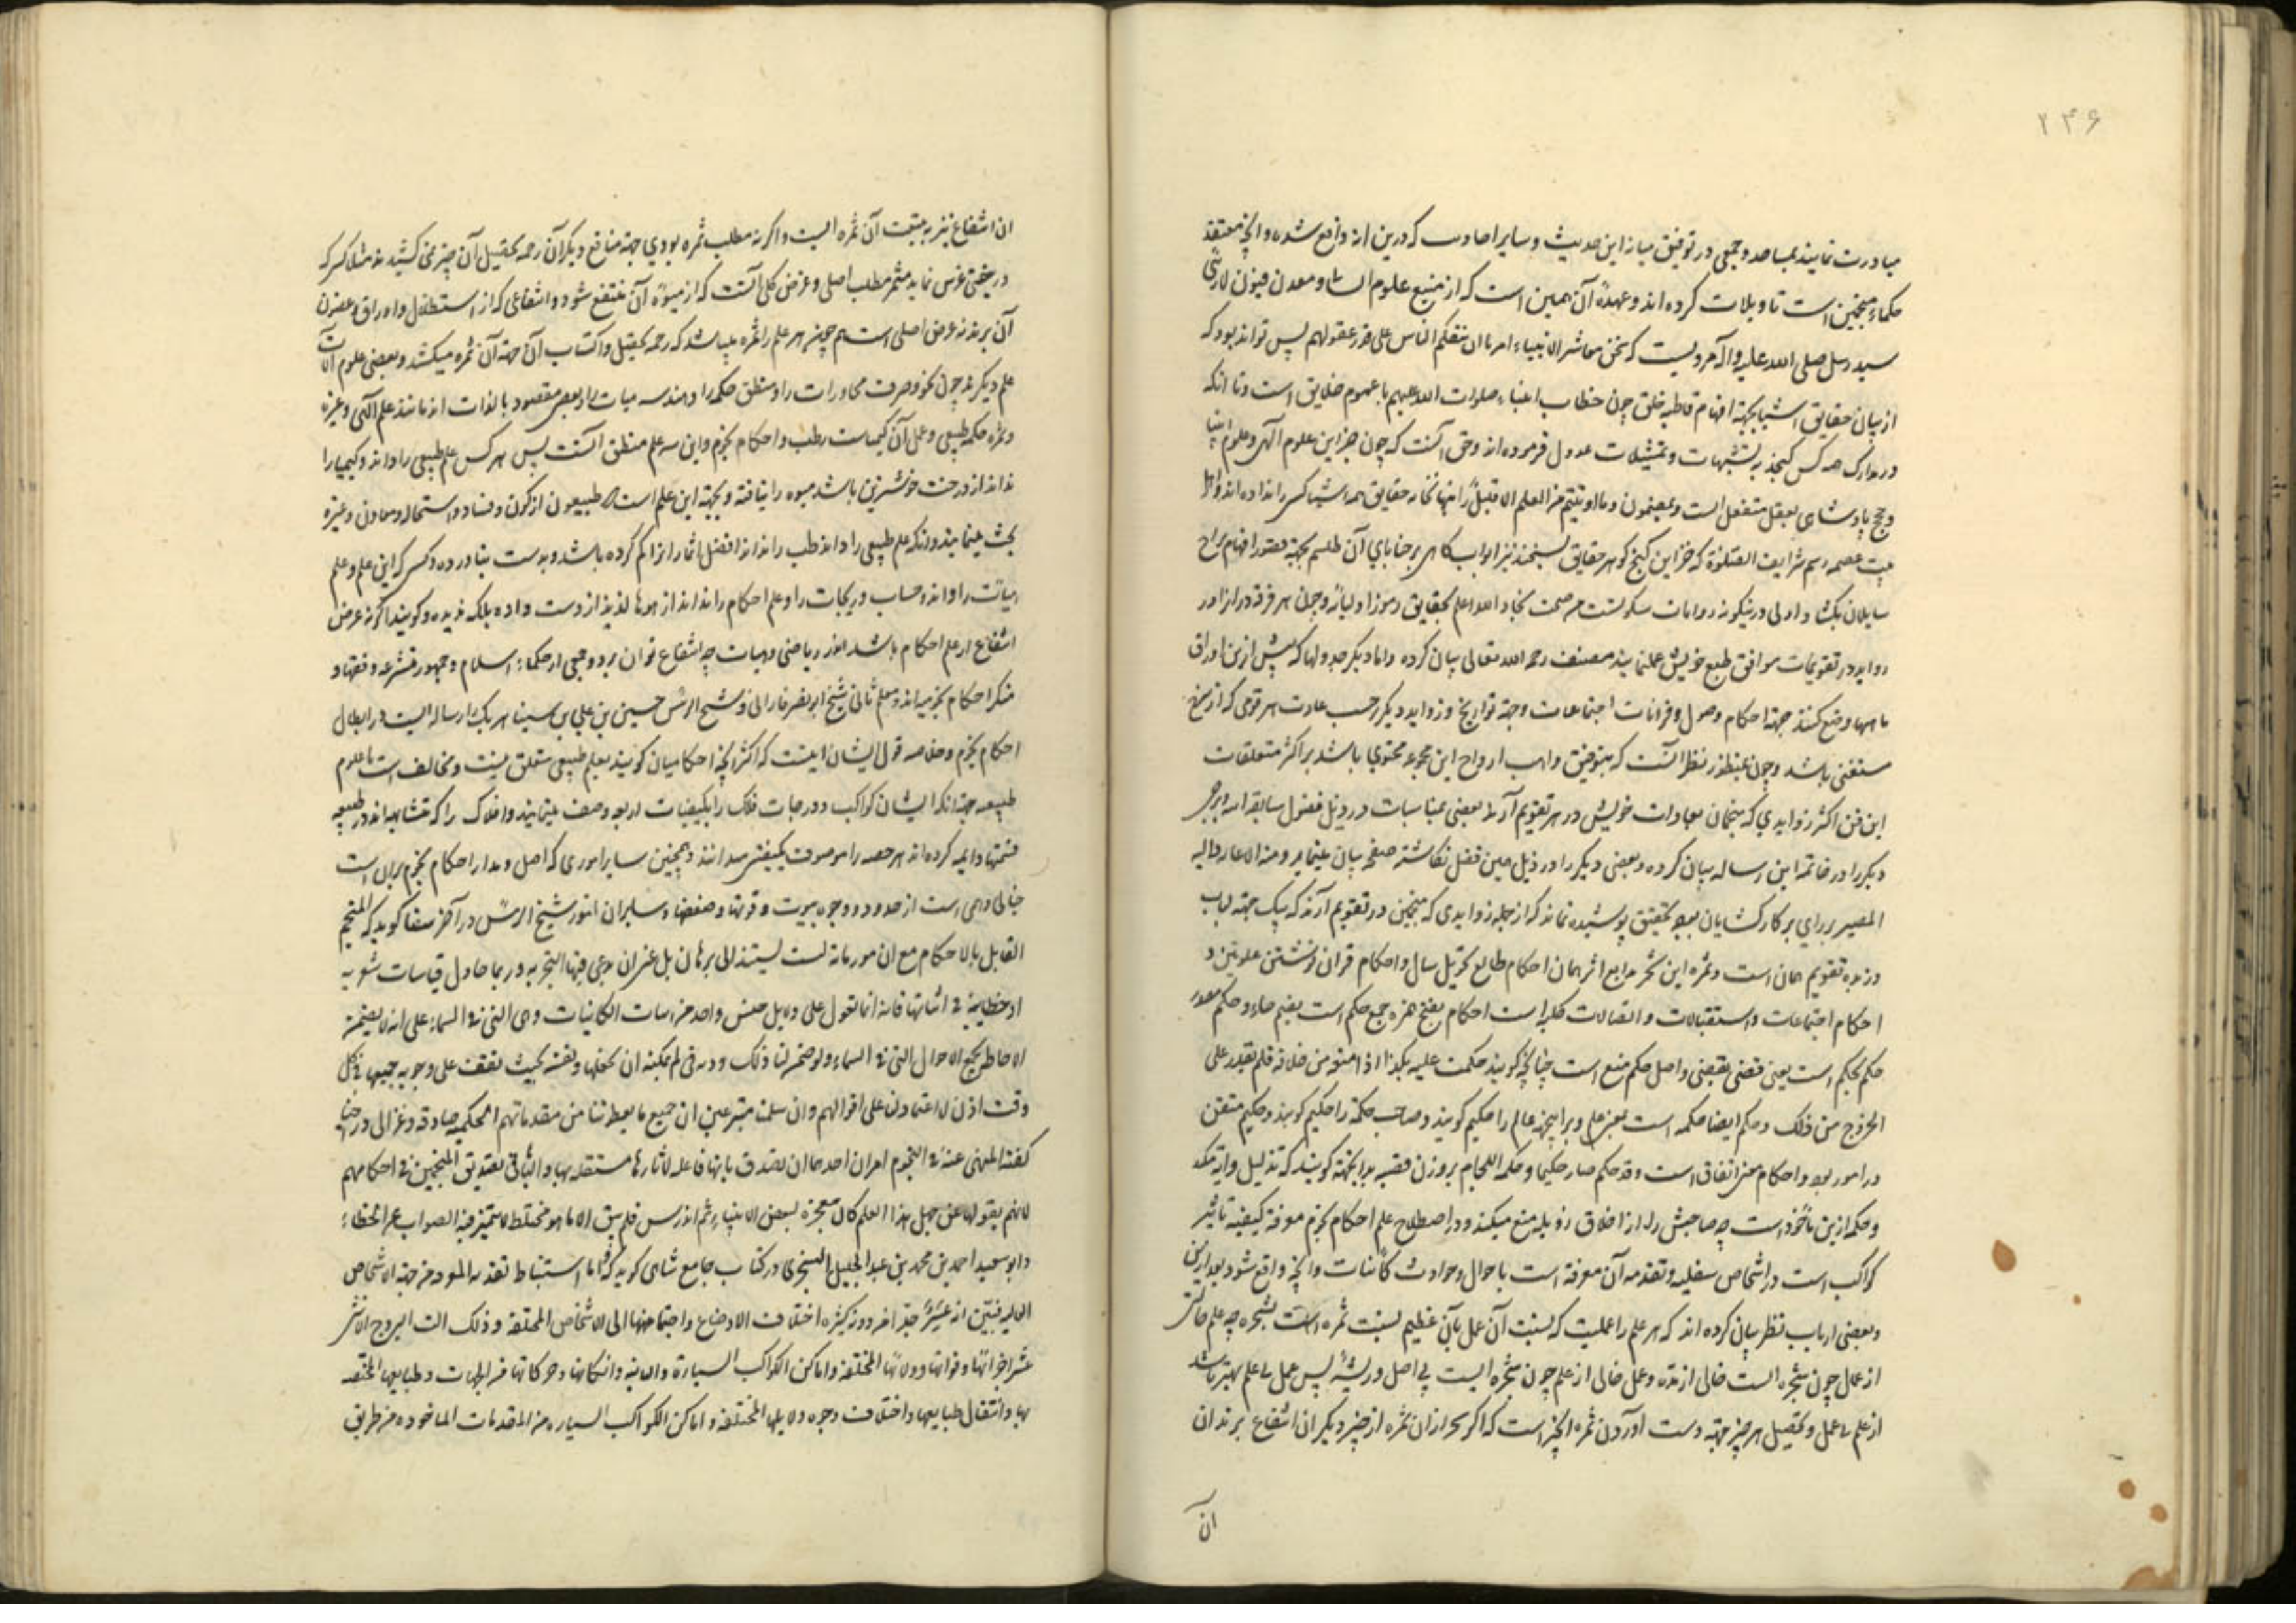 ۲۴۶
مبادرت نمایند بمباحد و جمعی در توفیق میانه این حدیث و سایر احادیث که درین
حکماء منجمین است تاویلات کرده اند و عمده آن همین است که از منبع علوم و معدن فیوض
سید رسل صلی الله علیه و آله مرویست که نحن معاشر الانبیاء امرنا ان نتکلم الناس علی قدر عقولهم پس تواند بود که
از بیان حقایق اشیا بجهة افهام قاطبه خلق چون خطاب انبیاء صلوات الله علیهم با عموم خلایق است و تا انکه
در مدارک همه کس گنجد به تشبیهات و تمثیلات عدول فرموده اند و حق آنست که چون جز این علوم الهی و علوم انبیا
و ما اوتیتم من العلم الا قلیلا
که جز این گنج گوهر حقایق
سایلان بگشاد و اولی درینگونه روایات سکوتست والله اعلم بحقایق رموز اولیائه و چون هر فرقه در
در تقویمات موافق طبع خویش عمل مینمایند مصنف رحمه الله تعالی بیان کرده و اما دیگر جدولها که پیش ازین اوراق
ماهها وضع کنند جهة احکام فصول و قرانات اجتماعات و جهة تواریخ و زواید دیگر حسب عادت هر قومی که از شرح
مستغنی باشد و چون نظر آنست که بتوفیق واهب ارواح این مجموعه محتوی باشد بر اکثر متعلقات
این فن اکثر زوایدی که منجمان بعادات خویش در هر تقویم آرند بعضی بمناسبات در ذیل فصول سابقه
دیگر را در خاتمه این رساله بیان کرده و بعضی دیگر را در ذیل همین فصل نگاشته صفحه بیان مینماید و منه الاعانه و الیه
المصیر بر رای پرکار گشایان تحقیق پوشیده نماند که از جمله زوایدی که منجمین در تقویم آرند که یک جهة لباب
و زبده تقویم همان است و ثمره این شجر همان احکام طالع تحویل سال و احکام قران
احکام اجتماعات و استقبالات و اتصالات کلیه است احکام بفتح همزه جمع حکم است بضم حاء و حکم مصدر
حکم یحکم است یعنی قضی یقضی و اصل حکم منع است چنانچه گویند حکمت علیه بکذا اذا منعته من خلافه فلم یقدر علی
الخروج من ذلک و حکم ایضا حکمه است بمعنی علم و برای اینجهة عالم را حکیم گویند و صاحب حکمة را حکیم گویند و حکیم متقن
در امور بود و احکام بمعنی اتقان است و قد حکم صار حکیما و حکمه اللجام بر وزن قصبه برای اینجهة گویند که تذلیل دابه میکند
و حکمه ازین ماخوذ است چه صاحبش را از اخلاق رذیله منع میکند و در اصطلاح علم احکام نجوم معرفة کیفیه تاثیر
کواکب است در اشخاص سفلیه و تقدمه آن معرفة است باحوال و حوادث کائنات و آنچه واقع شود بعد ازین
و بعضی ارباب نظر بیان کرده اند که هر علم را عملیست که نسبت آن عمل بآن عظیم نسبت ثمره است بشجره چه علم خالی
از عمل چون شجره ایست خالی از ثمره و عمل خالی از علم چون شجره ایست بی اصل و ریشه پس عمل بی علم بهتر باشد
از علم بی عمل و تحصیل هر چیز جهة بدست آوردن ثمره آنچیز است که اگر بجز از ان ثمره از چیز دیگر ان انتفاع برند ان
ان
ان انتفاع نیز به تبعیت آن ثمره ایست و اگر نه مطلب ثمره بودی جهة منافع دیگر آن رحمه تحصیل آن چیز نمی کشیدند مثلا کسی که
درختی غرس نماید مثمر مطلب اصلی و غرض کلی آنست که از میوه آن منتفع شود و انتفاعی که از استظلال و اوراق و غصون
آن برند نه غرض اصلی است همچنین هر علم را ثمره میباشد که تحصیل و اکتساب آن جهة آن ثمره میکشد و بعضی علوم آلات
علم دیگرند چون نحو و صرف محاورات را و منطق حکمه را و هندسه هیات را و بعضی مقصود بالذات اند مانند علم الهی و غیره
و ثمره حکمه طبیعی و عمل آن کیمیاست و طب و احکام نجوم و این سه علم منطق آنست پس هر کس علم طبیعی را داند و کیمیا را
نداند از درخت باشد میوه را نیافته و بجهة این علم است که طبیعیون از کون و فساد و استحاله و معادن و غیره
بحث مینمایند و انکه علم طبیعی را داند و طب را نداند افضل اثمار انرا گم کرده باشد و بدست نیاورده و کسی که این علم و علم
هیات را داند و حساب و زیجات را و علم احکام را نداند از میوها لذیذ از دست داده بلکه ندیده و گویند اگر نه غرض
انتفاع از علم احکام باشد از ریاضی و هیات چه انتفاع توان برد و جمعی از حکماء اسلام و جمهور متشرعه و فقها و
منکر احکام نجومیه اند و معلم ثانی شیخ ابو نصر فارابی و شیخ الرئیس حسین بن علی بن سینا هر یک را رساله ایست در ابطال
احکام نجوم و خلاصه قول ایشان اینست که اکثر آنچه احکامیان گویند بعلم طبیعی متعلق نیست و مخالف است با علوم
طبیعیه جهة انکه ایشان کواکب و درجات فلک را بکیفیات اربعه وصف مینمایند و افلاک را که متشابهه اند در طبیعه
قسمتها دایمه کرده اند هر حصه را موصوف بکیفیتی میدانند و همچنین سایر اموری که اصل و مدار احکام نجوم بران است
خیالی واهی است از حدود و وجوه بیوت و قوتها و ضعفها و سایر ان امور شیخ الرئیس در آخر شفا گوید که المنجم
القایل بالاحکام مع ان لیست تستند الی برهان بل عسی ان یدعی فیها التجربه و ربما حاول قیاسات شعریه
او خطابیه فی اثباتها فانه انما یعول علی دلایل جنس واحد من اسباب الکائنات و هی التی فی السماء علی انه لا یضمن
الاحاطه بجمیع الاحوال التی فی السماء و لو ضمن لنا ذلک و وفی لم یمکنه ان یجعلنا و نفسه بحیث نقف علی وجود جمیعها فی کل
وقت اذن لا اعتماد لنا علی اقوالهم و ان سلمنا متبرعین ان جمیع ما یعطوننا من مقدماتهم الحکمیه صادقه و غزالی در احیا
گفته المنهی عنه فی النجوم امران احدهما ان یصدق بانها فاعله لاثارها مستقله بها و الثانی تصدیق المنجمین فی احکامهم
لانهم یقولونها عن جهل هذا العلم کان معجزه لبعض الانبیاء ثم اندرس فلم یبق الا ما هو مختلط لا یتمیز فیه الصواب عن الخطاء
و ابو سعید احمد بن محمد بن عبد الجلیل السنجری در کتاب جامع شاهی گوید که اما استنباط تقدمه المعرفه من جهة الاشخاص
العالیه اختلاف الاوضاع و اجتماعها الی الاشخاص المختلفه و ذلک البروج الاثنی
عشر اجزائها و قواتها و دلالتها المختلفه و اماکن الکواکب السیاره و الثابته و حرکاتها من الجهات و طبایعها المختلفه
بها و انتقال طبایعها و اختلاف وجوه دلایلها المختلفه و اماکن الکواکب السیاره من المقدمات الماخوذه من طریق